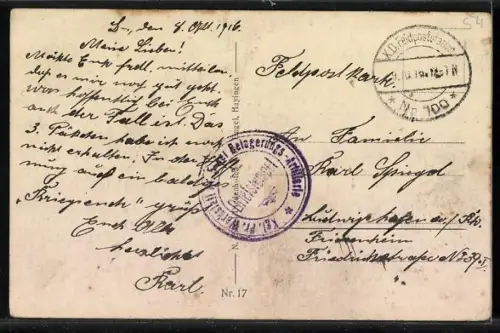 L–, den 8. Okt. 1916.
Meine Lieben!
Möchte Euch frdl. mitteilen
daß es mir noch gut geht.
was hoffentlich bei Euch
auch der Fall ist. Das
3. Päckchen habe ich noch
nicht erhalten. In der Hoffnung
auf ein baldiges
"Kriegsende" grüßt
Euch Alle
herzlichst
Karl
Nr. 17
Hayingen
Feldpostkarte.
An Familie
Karl
Ludwigshafen a/Rh.
Friesenheim
Friedrichstraße No
K.D. Feldpostexped.
* Nr. 100 *
Belagerungs-Artillerie
Kgl. Pr.
Briefstempel
54